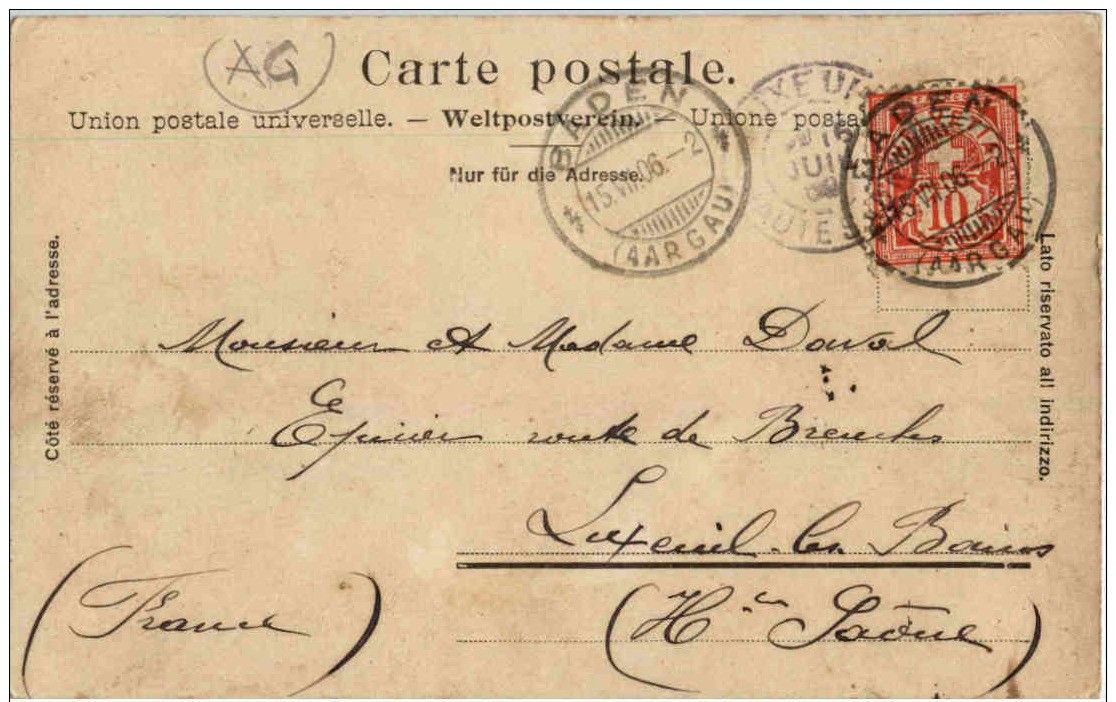 (AG)
Carte postale.
Union postale universelle. — Weltpostverein. — Unione posta
Nur für die Adresse.
BADEN
15.VI.06.–2
(AARGAU)
UXEUI
15
JUIN
BADEN
15.VI.06.–2
(AARGAU)
10
Côté réservé à l'adresse.
Lato riservato all indirizzo.
Monsieur et Madame Daval
Epicier route de Breuches
Luxeuil-les-Bains
(Hte Saône)
(France)